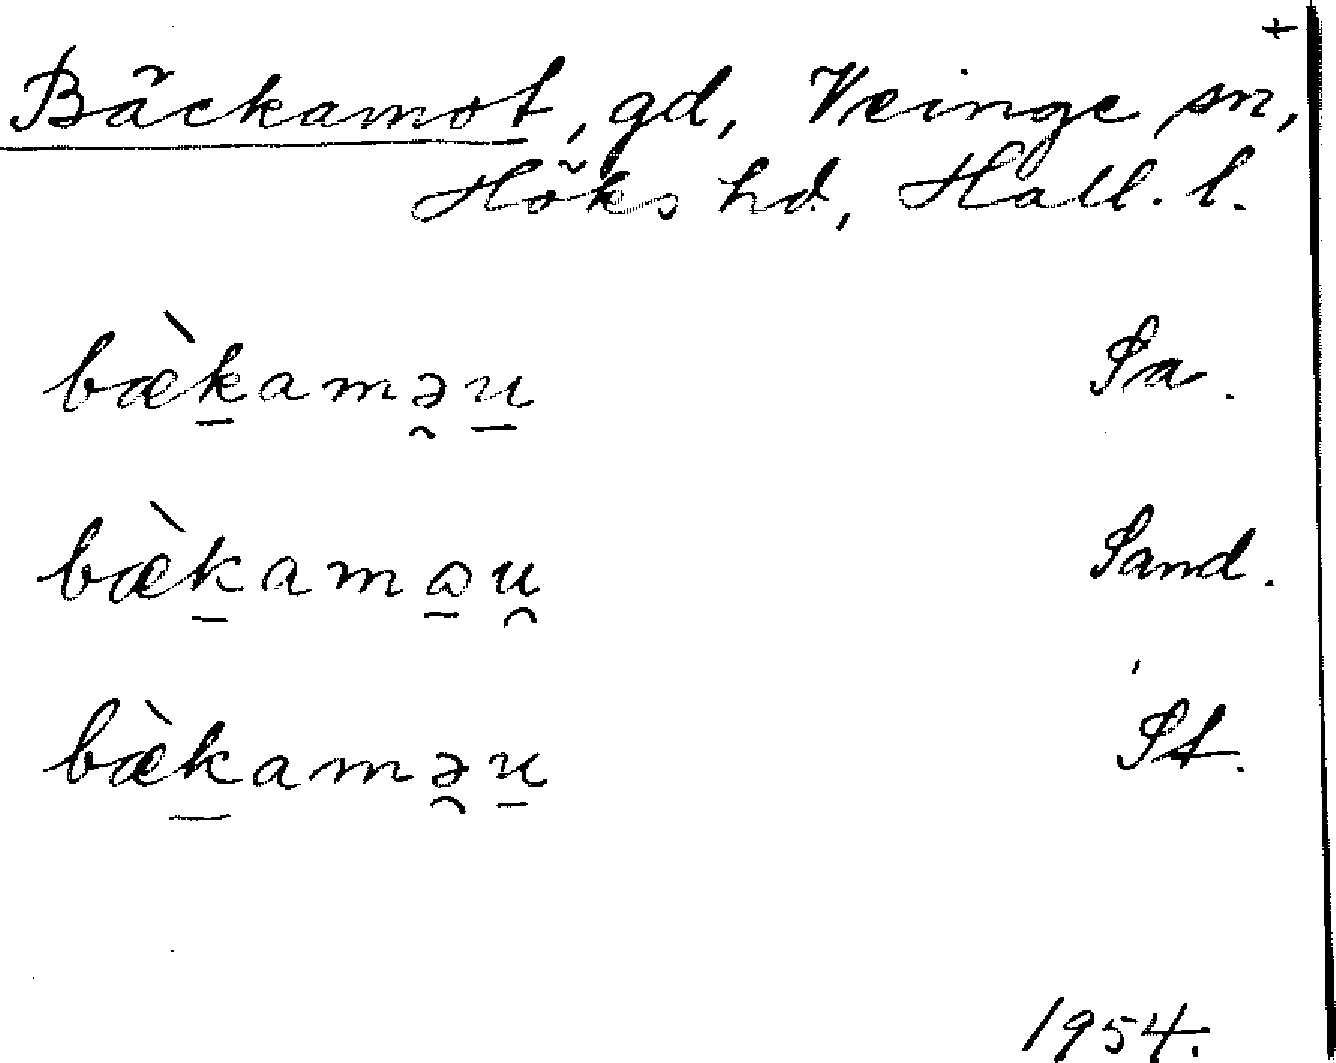 +
Bäckamot, gd, Veinge sn,
Höks hd, Hall. l.
bæ̀k̲amə̯u̲ Sa.
bæ̀k̲amɷ̲u̯ Sand.
bæ̀k̲amə̯u̲ St.
1954.